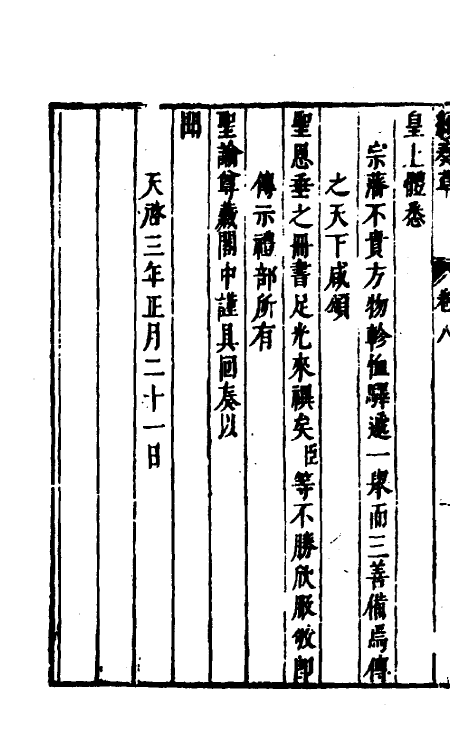 奏草 卷八
皇上體悉
宗藩不貴方物軫恤驛遞一舉而三善備焉傳
之天下咸頌
聖恩垂之冊書足光來禩矣臣等不勝欣服敬即
傳示禮部所有
聖諭尊藏閣中謹具回奏以
聞
天啓三年正月二十一日